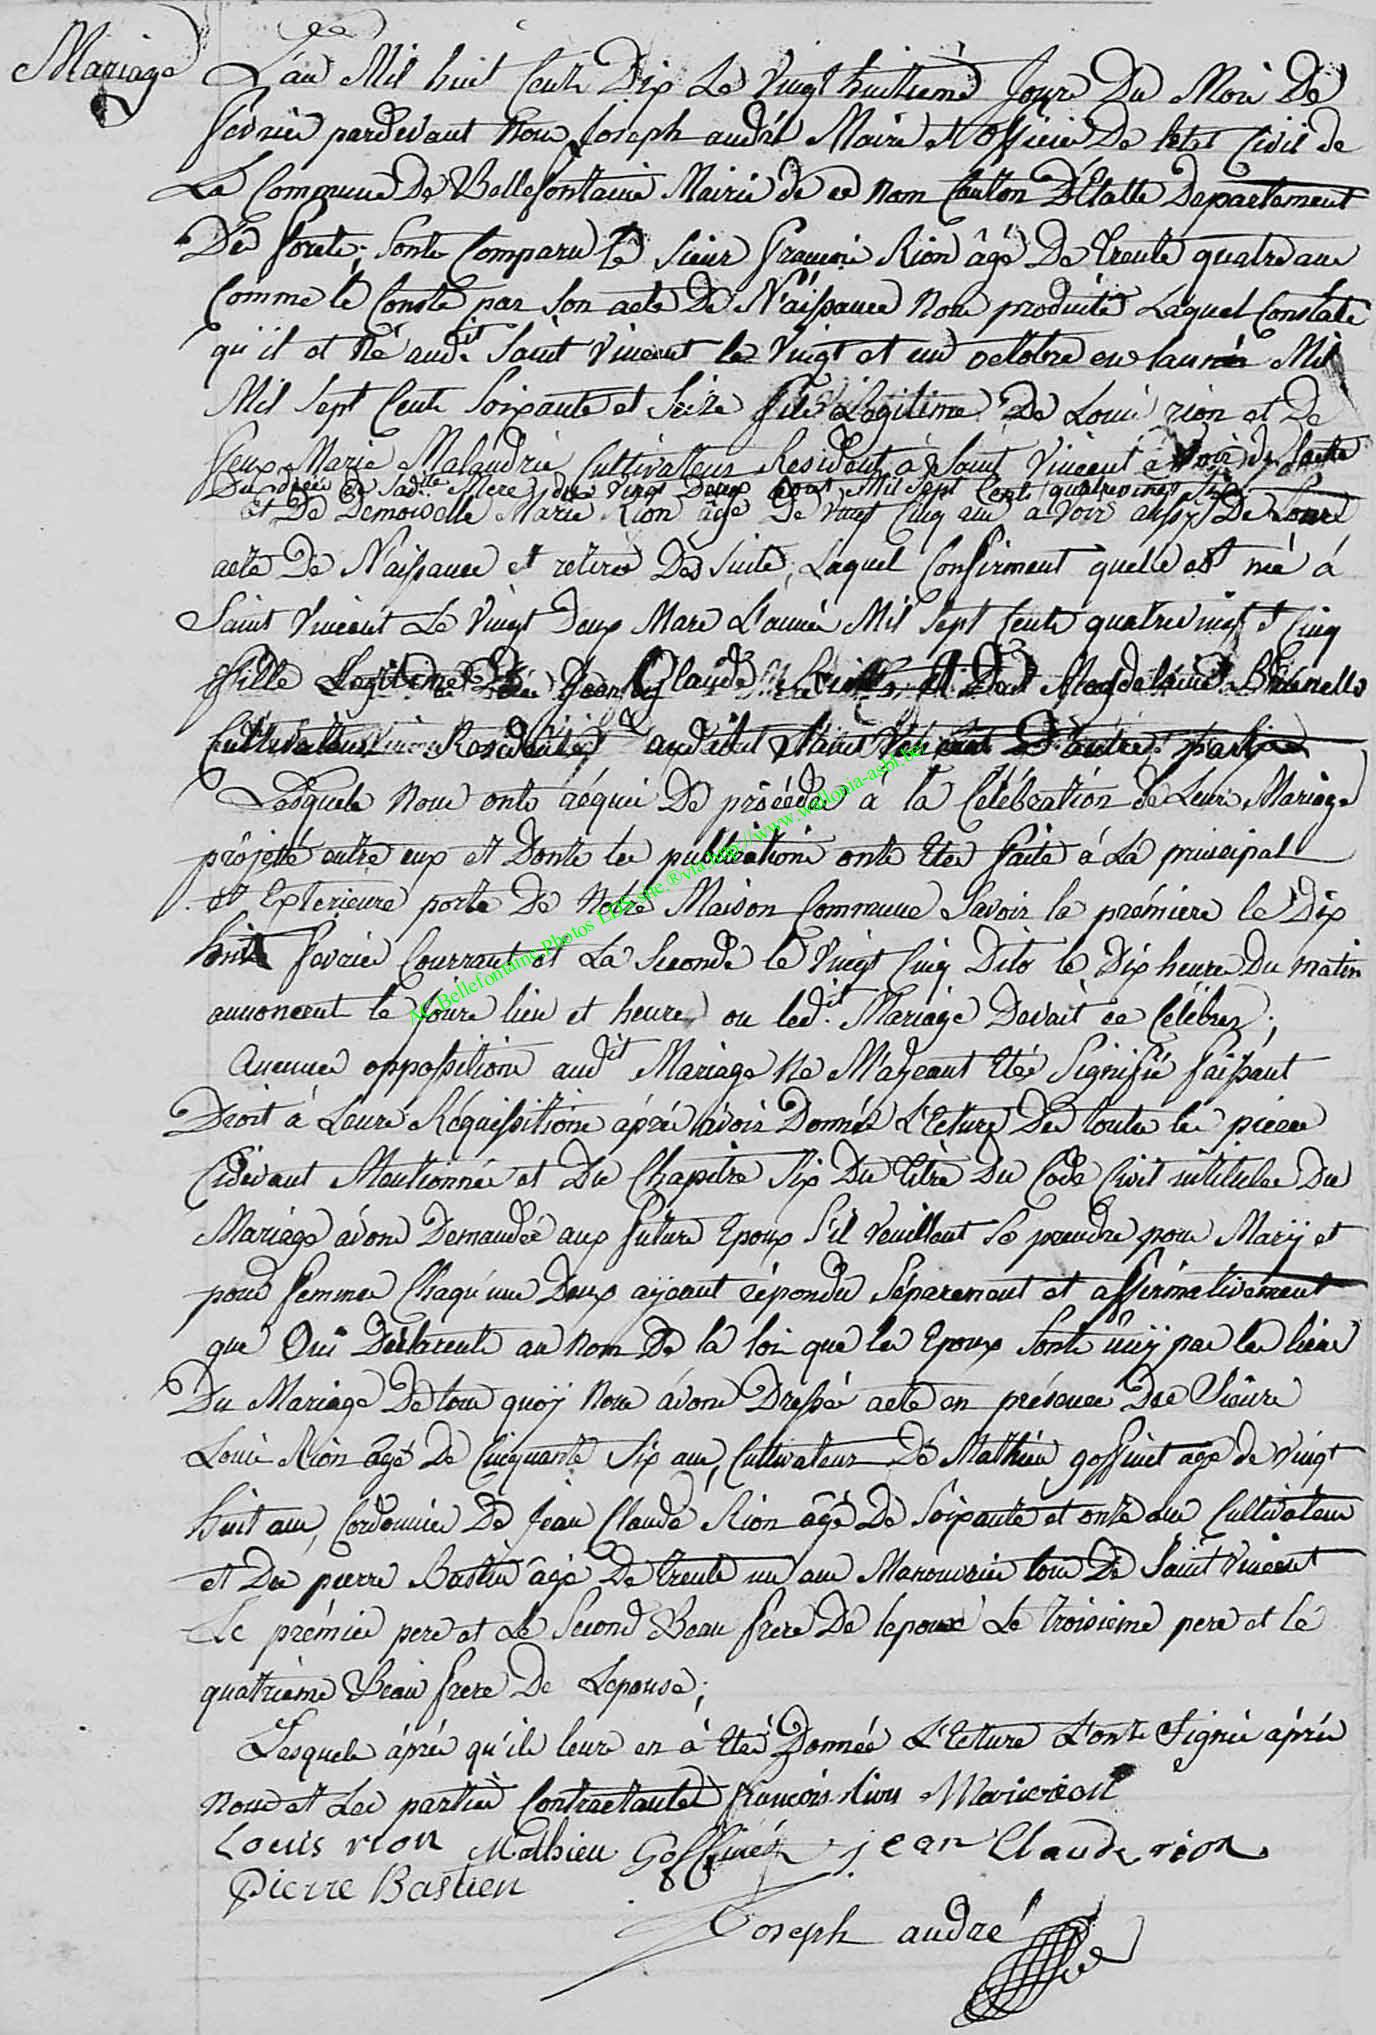 Mariage
L'an Mil huit Cents Dix Le Vingt huitieme Jour Du Moi De
fevrier pardevant Nous Joseph andré Maire et Officier De letat Civil de
La Commune De Bellefontaine Mairie de ce nom Canton D'Etalle Departement
Dés forets; Sonts Comparu le Sieur François Rion âgé De Trente quatre ans
Comme le Conste par Son acte De Naissance Nous produite Laquel Constate
qu'il et Né audit Saint Vincent le Vingt et un octobre en lannée Mil
Mil Sept Cents Soixante et Seize fils Légitime De Louis rion et De
feux Marie Malandrie Cultivateur Résident à Saint Vincent à Voir de lacte
Du décé de Sadite Mere du Vingt Deux aout Mil Sept Cent quatrevingt
et De Demoiselle Marie Rion âgé De Vingt Cinq ans à voir aussy De Son
acte De Naissance et retiree De Suite, Laquel Confirment quélle est née á
Saint Vincent Le Vingt Deux Mars L'année Mil Sept Cents quatrevingt Cinq
fille Légitime De Jean Claude Rion et De Magdelaine Brunelle
Cultivateur Residents audit Saint Vincent D'autre partie
Lesquels Nous onts réquis De procéder à la Célébration de Leur Mariage
projetté entre eux et Donts les publications onts Etes faite á La principal
et Exterieure porte De Notre Maison Commune Savoir la prémiere le Dix
huit fevrier Courrant et La Seconde le Vingt Cinq Dito le Dix heure Du matin
annoncent le Jours lieu et heure ou ledit Mariage Devait ce Célébrer;
Aucune oppossition audit Mariage Ne M'ayeant Etés Signifié faissant
Droit à Leurs Réquissitions áprés ávoir Donnés L'Eture De toute les piéces
Cidévant Mentionnés et Du Chapitre Six Du Titre Du Code Civil intitulee Du
Mariage ávons Demandée aux future Epoux S'il Veuillent Se prendre pour Marÿ et
pour femme Chaqu'un Deux aÿeant répondu Séparement et affirmativement
que Oui Declarents au Nom De la loi que les Epoux Sonts unÿ par les liens
Du Mariage De tous quoÿ Nous ávons Dressée acte en présence Des Sieûrs
Louis Rion âgé de Cinquante Six ans, Cultivateur De Mathieu goffinet agé de Vingt
huit ans, Cordonnier De Jean Claude Rion âgé De Soixante et onse ans Cultivateur
et De pierre Bastin âgé De Trente un ans Manouvrier tous De Saint Vincent
Le prémier pere et Le Second Beau frere De lepoux Le troisieme pere et le
quatriéme Beau frere De Lepouse;
Lesquels áprés qu'ils leurs en à Etés Donnée L'Eture L'onts Signés áprés
Nous et Les parties Contractantes françois Rion Marie rion
Louis rion Mathieu Goffinet jean Claude rion
Pierre Bastien
Joseph andré
AC Bellefontaine, Photos LDS site ® via http://www.wallonia-asbl.be/